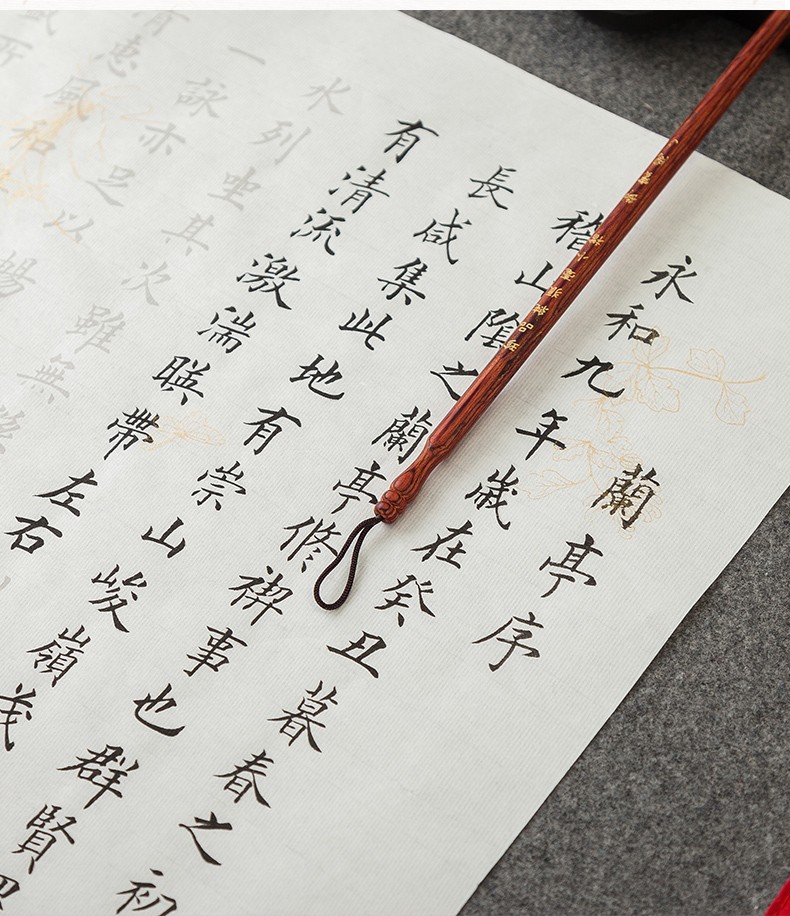 蘭亭序
永和九年歲在癸丑暮春之初
稽山陰之蘭亭修禊事也群賢
長咸集此地有崇山峻嶺茂
有清流激湍暎帶左右
水列坐其次雖無
一詠亦足以暢
惠風和